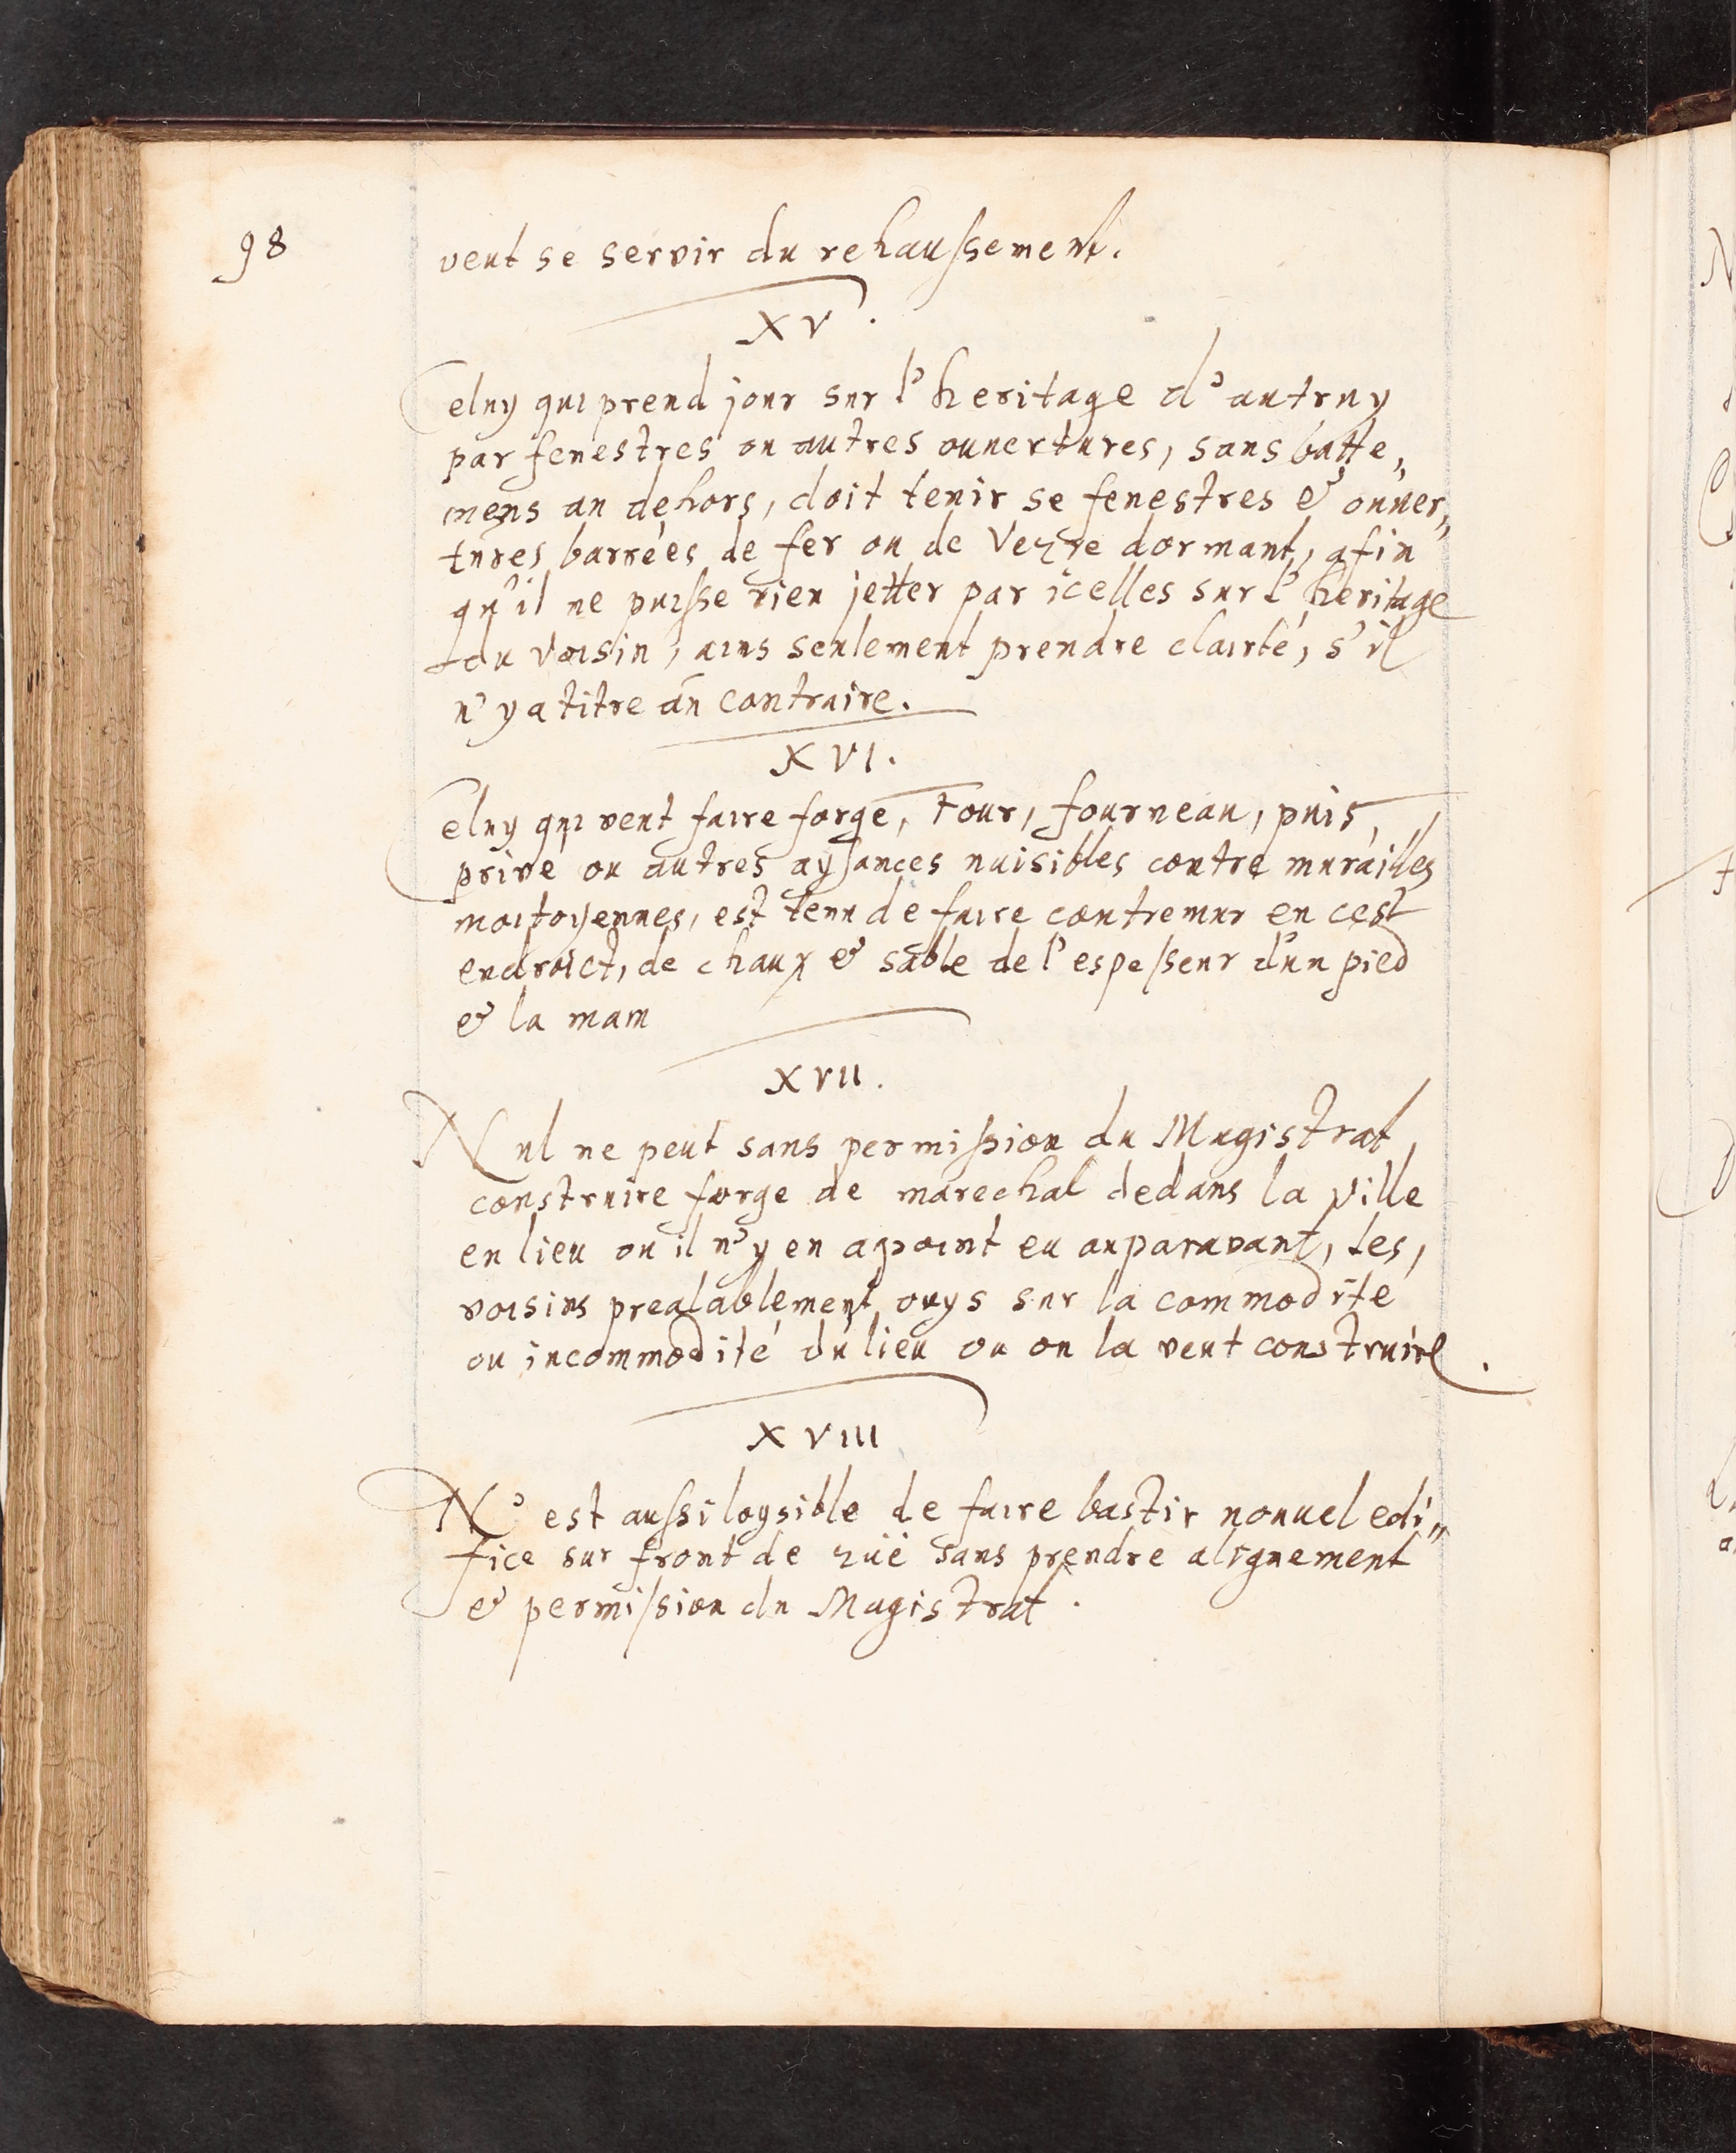 98
veut se servir du rehaussement.
XV.
Celuy qui prend jour sur l'heritage d'autruy
par fenestres ou autres ouuertures, sans batte„
mens au dehors, doit tenir se fenestres & ouuer„
tures barrées de fer ou de Verre dormant, afin
qu'il ne puisse rien jetter par icelles sur l'heritage
du voisin, ains seulement prendre clairté, s'il
n'y a titre au contraire.
XVI.
Celuy qui veut faire forge, four, fourneau, puis,
privé ou autres aysances nuisibles contre murailles
moitoyennes, est tenu de faire contremur en cest
endroict, de chaux & sable de l'espesseur d'un pied
& la mam
XVII.
Nul ne peut sans permission du Magistrat,
construire forge de marechal dedans la ville
en lieu ou il n'y en a point eu auparavant, les,
voisins prealablement ouys sur la commodité
ou incommodité du lieu ou on la veut construire.
XVIII
N'est aussi loysible de faire bastir nouuel edi„
fice sur front de rüë sans prendre alignement
& permission du Magistrat.